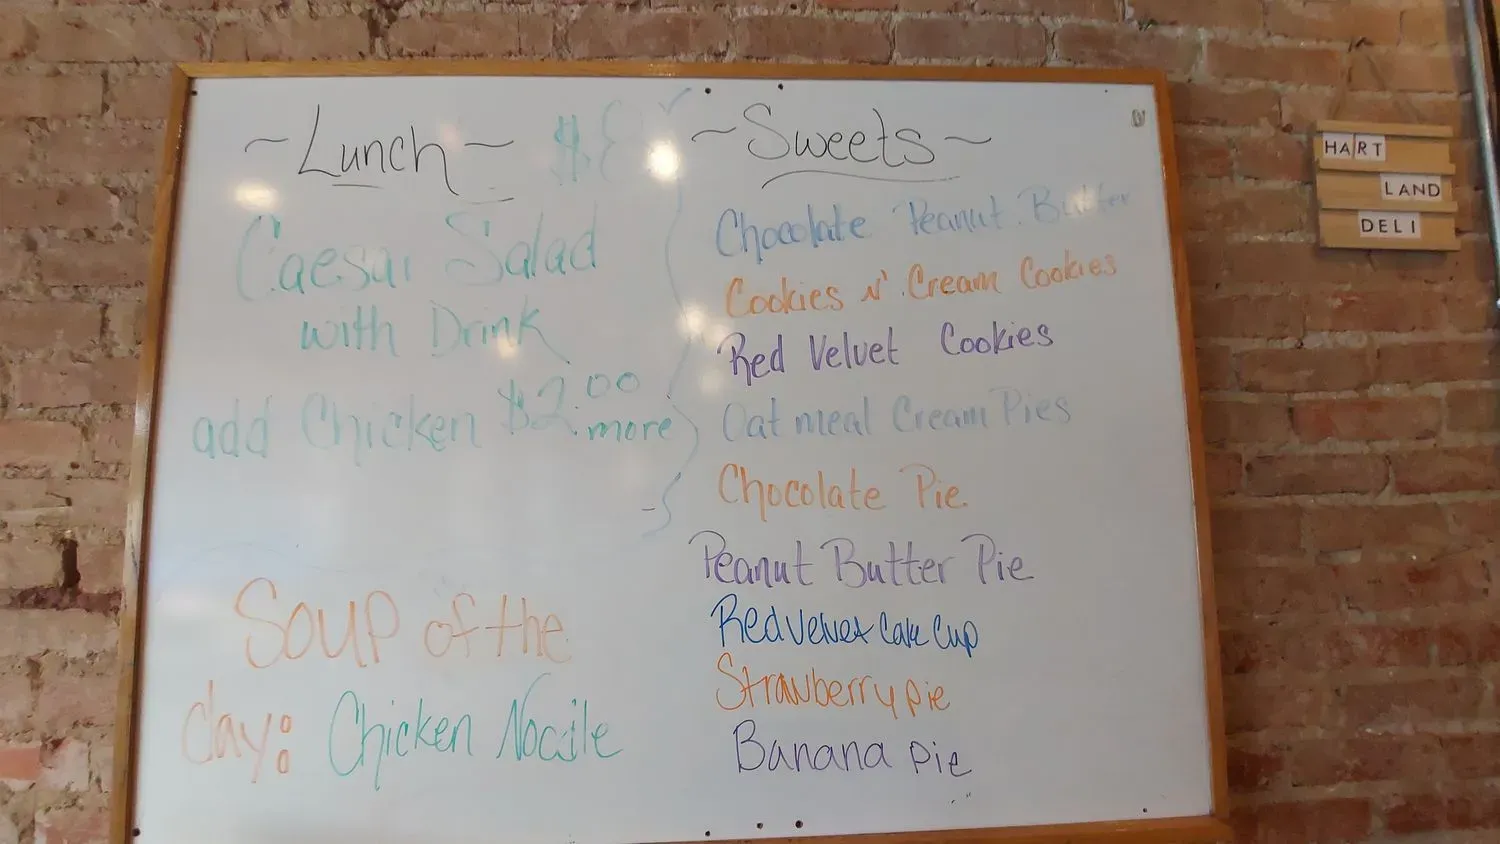 ~Lunch~
Caesar Salad
with Drink
add Chicken $2.00
more
Soup of the
day: Chicken Noodle
~Sweets~
Chocolate Peanut Butter
Cookies N' Cream Cookies
Red Velvet Cookies
Oatmeal Cream Pies
Chocolate Pie
Peanut Butter Pie
Red Velvet Cake Cup
Strawberry pie
Banana pie
HART
LAND
DELI